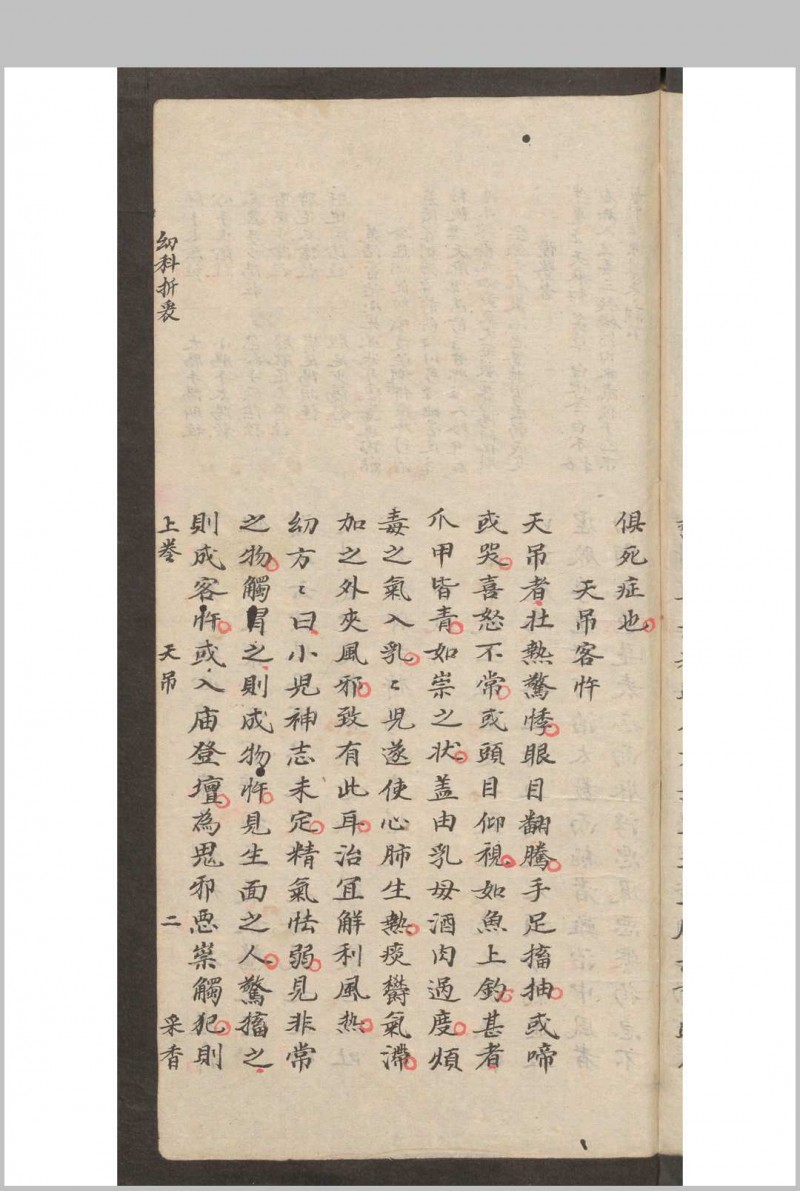 俱死症也
天吊客忤
天吊者壮熱驚悸眼目翻騰手足搐抽或啼
或哭喜怒不常或頭目仰視如魚上釣甚者
爪甲皆青如祟之状盖由乳母酒肉過度煩
毒之氣入乳〻児遂使心肺生熱痰欝氣滯
加之外夾風邪致有此耳治宜解利風熱
幼方〻曰小児神志未定精氣怯弱見非常
之物觸冒之則成物忤見生面之人驚搐之
則成客忤或入庙登壇為鬼邪悪祟觸犯則
幼科折衷 上卷 天吊 二 采香